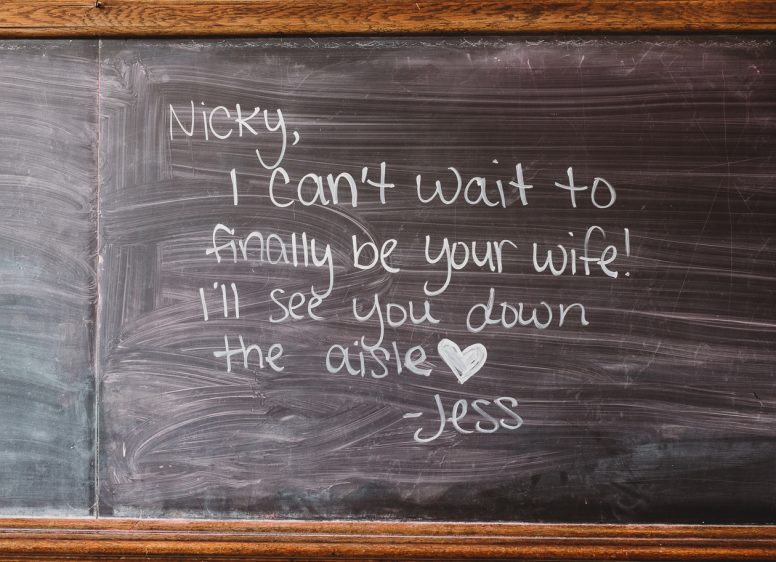 Nicky,
I can't wait to
finally be your wife!
I'll see you down
the aisle♥
-Jess